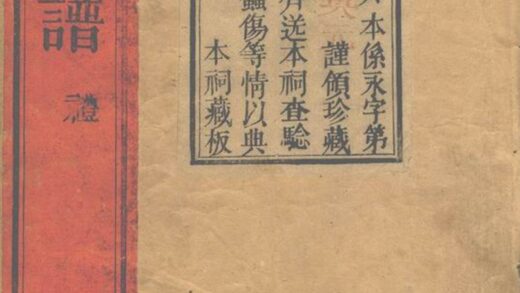 本係永字第
謹領珍藏
送本祠查驗
蟲傷等情以典
本祠藏板
譜
禮